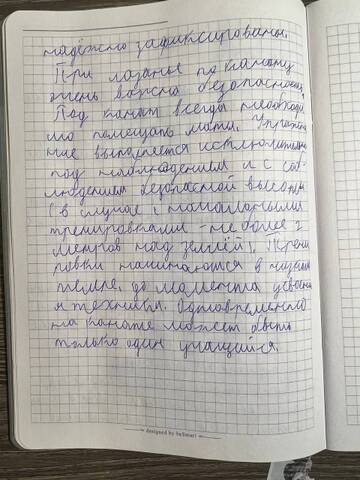 надёжно зафиксированы.
При лазанье по канату
очень важна безопасность.
Под канат всегда необходи
мо помещать маты. Упражне
ние выполняется исключительно
под наблюдением и с соб
людением безопасной высоты
(в случае с начальными
тренировками - не более 2
метров над землёй). Трени
ровки начинаются в низком
темпе, до момента усвоени
я техники. Одновременно
на канате может быть
только один учащийся.
designed by beSmart